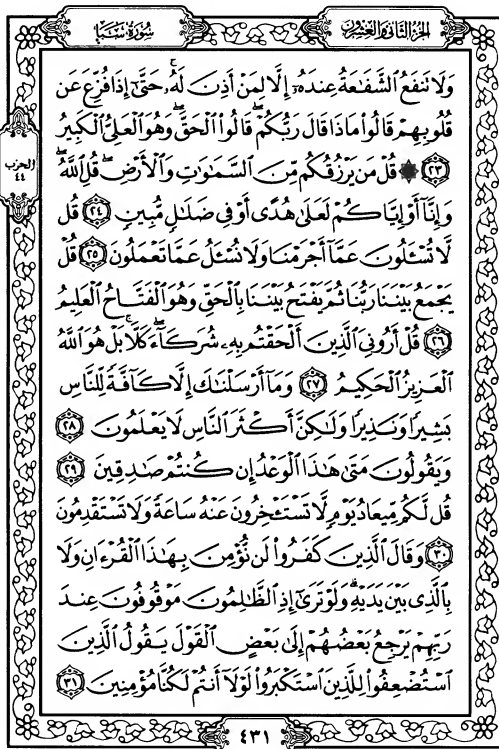 سُورَةُ سَبَإٍ
الجُزءُ الثَّانِي وَالعِشرُونَ
وَلَا تَنفَعُ ٱلشَّفَٰعَةُ عِندَهُۥٓ إِلَّا لِمَنْ أَذِنَ لَهُۥ حَتَّىٰٓ إِذَا فُزِّعَ عَن
قُلُوبِهِمْ قَالُوا۟ مَاذَا قَالَ رَبُّكُمْ ۖ قَالُوا۟ ٱلْحَقَّ ۖ وَهُوَ ٱلْعَلِىُّ ٱلْكَبِيرُ
٢٣ ۞ قُلْ مَن يَرْزُقُكُم مِّنَ ٱلسَّمَٰوَٰتِ وَٱلْأَرْضِ ۖ قُلِ ٱللَّهُ ۖ
وَإِنَّآ أَوْ إِيَّاكُمْ لَعَلَىٰ هُدًى أَوْ فِى ضَلَٰلٍ مُّبِينٍ ٢٤ قُل
لَّا تُسْـَٔلُونَ عَمَّآ أَجْرَمْنَا وَلَا نُسْـَٔلُ عَمَّا تَعْمَلُونَ ٢٥ قُلْ
يَجْمَعُ بَيْنَنَا رَبُّنَا ثُمَّ يَفْتَحُ بَيْنَنَا بِٱلْحَقِّ وَهُوَ ٱلْفَتَّاحُ ٱلْعَلِيمُ
٢٦ قُلْ أَرُونِىَ ٱلَّذِينَ أَلْحَقْتُم بِهِۦ شُرَكَآءَ ۖ كَلَّا ۚ بَلْ هُوَ ٱللَّهُ
ٱلْعَزِيزُ ٱلْحَكِيمُ ٢٧ وَمَآ أَرْسَلْنَٰكَ إِلَّا كَآفَّةً لِّلنَّاسِ
بَشِيرًا وَنَذِيرًا وَلَٰكِنَّ أَكْثَرَ ٱلنَّاسِ لَا يَعْلَمُونَ ٢٨
وَيَقُولُونَ مَتَىٰ هَٰذَا ٱلْوَعْدُ إِن كُنتُمْ صَٰدِقِينَ ٢٩
قُل لَّكُم مِّيعَادُ يَوْمٍ لَّا تَسْتَـْٔخِرُونَ عَنْهُ سَاعَةً وَلَا تَسْتَقْدِمُونَ
٣٠ وَقَالَ ٱلَّذِينَ كَفَرُوا۟ لَن نُّؤْمِنَ بِهَٰذَا ٱلْقُرْءَانِ وَلَا
بِٱلَّذِى بَيْنَ يَدَيْهِ ۗ وَلَوْ تَرَىٰٓ إِذِ ٱلظَّٰلِمُونَ مَوْقُوفُونَ عِندَ
رَبِّهِمْ يَرْجِعُ بَعْضُهُمْ إِلَىٰ بَعْضٍ ٱلْقَوْلَ يَقُولُ ٱلَّذِينَ
ٱسْتُضْعِفُوا۟ لِلَّذِينَ ٱسْتَكْبَرُوا۟ لَوْلَآ أَنتُمْ لَكُنَّا مُؤْمِنِينَ ٣١
الحزب
٤٤
٤٣١